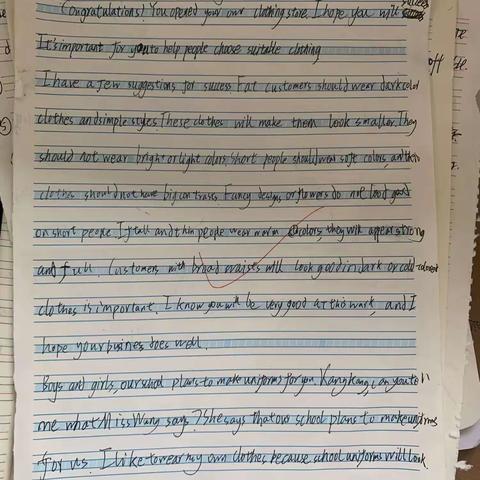 success
Congratulations! You opened your own clothing store. I hope you will
It's important for you to help people choose suitable clothing
I have a few suggestions for success Fat customers should wear dark color
clothes and simple styles. These clothes will make them look smaller. They
should not wear bright or light colors. Short people should wear soft colors, and their
clothes should not have big contrases. Fancy designs or flowers do not look good
on short people If tall and thin people wear warm colors, they will appear strong
and full. Customers with broad waists will look good in dark or cold
clothes is important. I know you will be very good at this work, and I
hope your busines does well.
Boys and girls, our school plans to make uniforms for you. Kangkang, can you tell
me what Miss Wang says? She says that our school plans to make uniforms
for us. I like to wear my own clothes because school uniforms will look